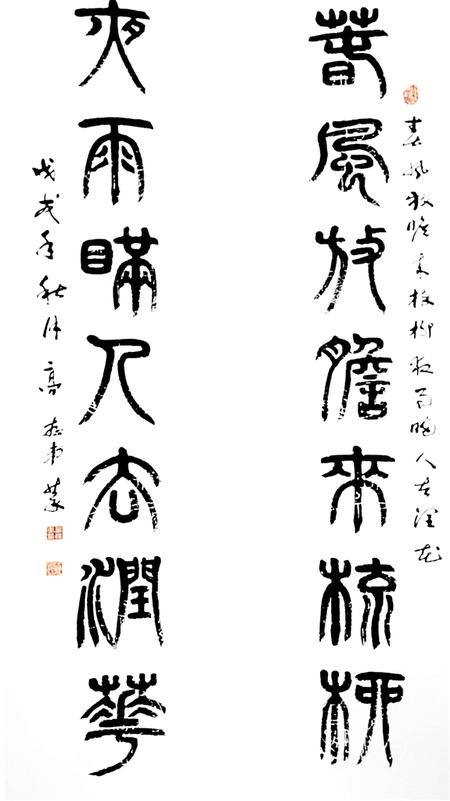 春風放膽來梳柳夜雨瞞人去潤花
春風放膽來梳柳
夜雨瞞人去潤華
戊戌年秋高篆